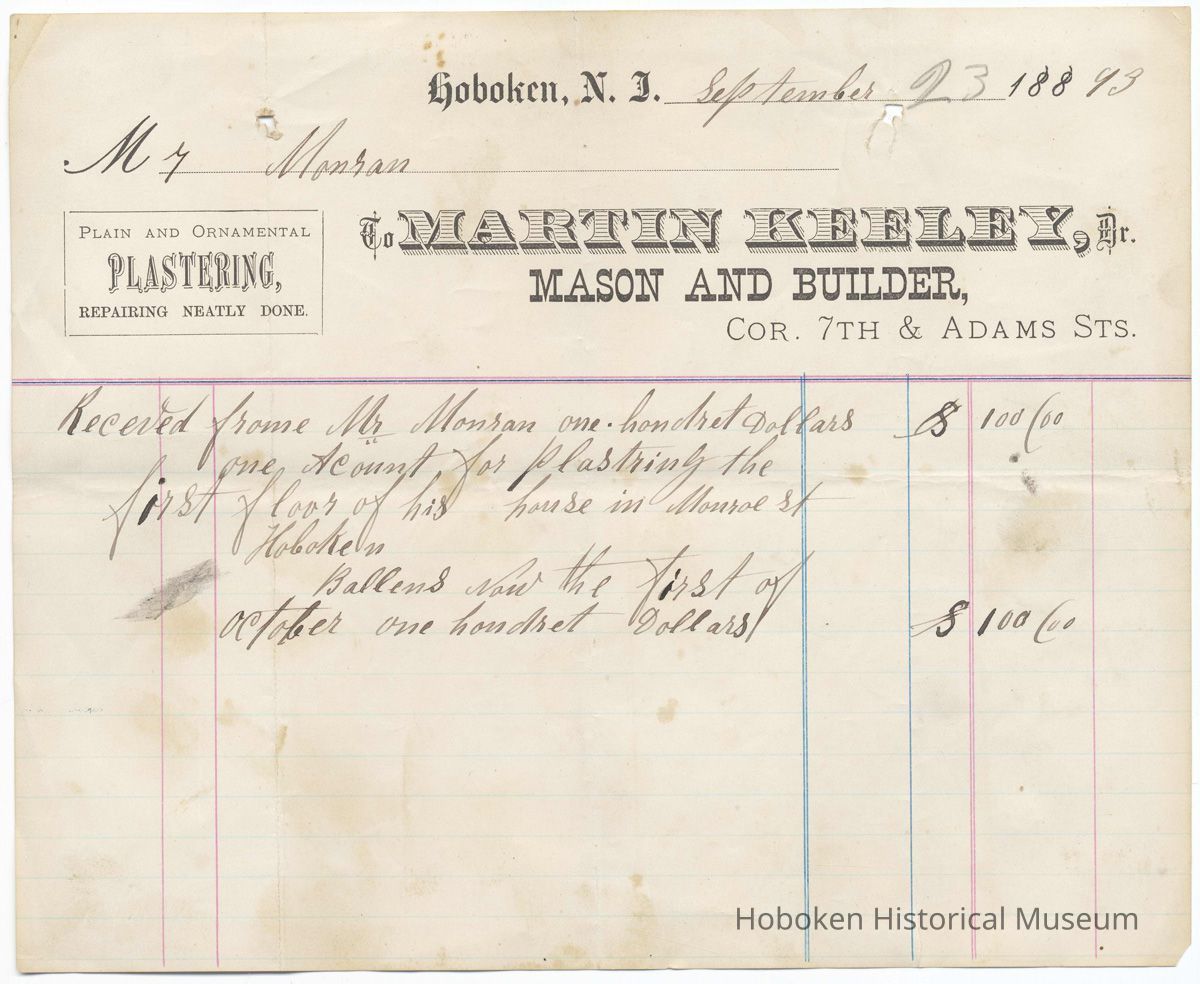 Hoboken, N. J. September 23 188 93
Mr Monran
PLAIN AND ORNAMENTAL
PLASTERING,
REPAIRING NEATLY DONE.
To MARTIN KEELEY, Dr.
MASON AND BUILDER,
COR. 7TH & ADAMS STS.
Receved frome Mr Monran one hondret Dollars $ 100 00
one Acount for plastring the
first floor of his house in Monroe st
Hoboken
Ballens Now the first of
October one hondret Dollars $ 100 00
Hoboken Historical Museum